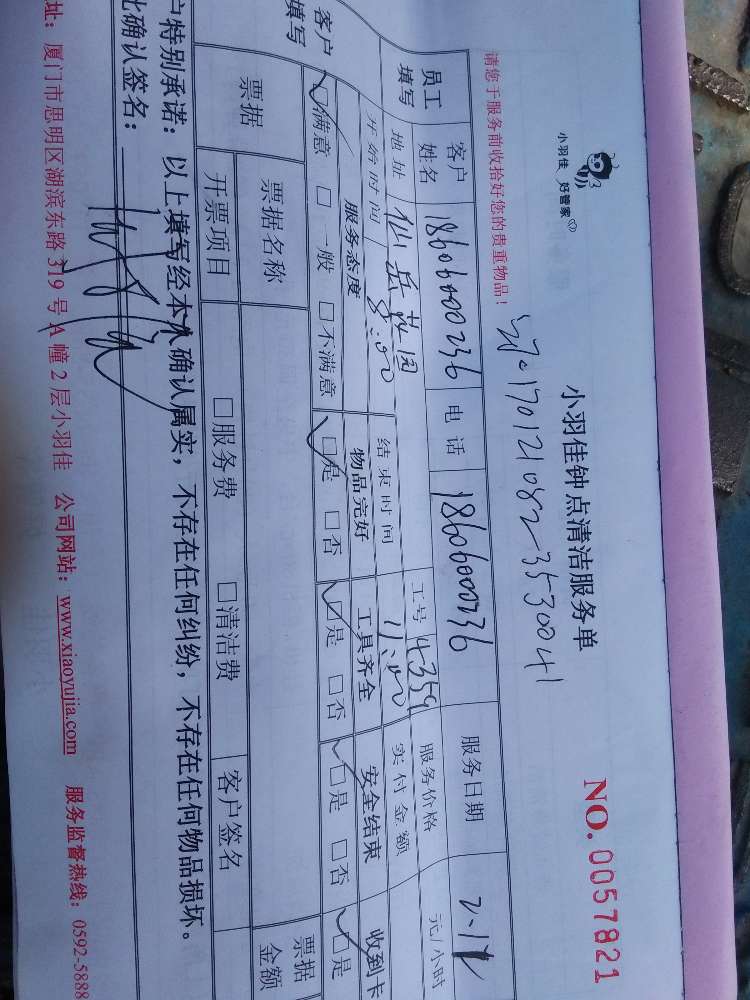 小羽佳 好管家
小羽佳钟点清洁服务单
NO.0057821
1701210823530041
请您于服务前收拾好您的贵重物品！
员工填写
客户姓名 18606000236 电话 18606000236 服务日期
地址 仙岳花园 工号 4359 服务价格 元/小时
开始时间 8:00 结束时间 11:00 实付金额
客户填写
服务态度 物品完好 工具齐全 安全结束 收到卡
☑满意 □一般 □不满意 ☑是 □否 ☑是 □否 ☑是 □否 ☑是
票据 票据名称 票据金额
开票项目 □服务费 □清洁费 客户签名
户特别承诺：以上填写经本人确认属实，不存在任何纠纷，不存在任何物品损坏。
此确认签名：
址：厦门市思明区湖滨东路319号A幢2层小羽佳 公司网站：www.xiaoyujia.com 服务监督热线：0592-5888